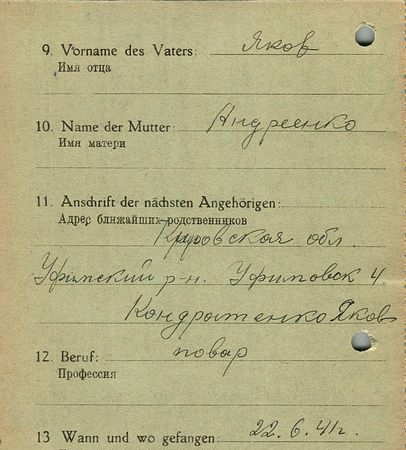 9. Vorname des Vaters: Яков
Имя отца
10. Name der Mutter: Андреенко
Имя матери
11. Anschrift der nächsten Angehörigen:
Адрес ближайших родственников
Кировская обл.
Уфимский р-н. Уфимовск 4.
Кондратенко Яков
12. Beruf: повар
Профессия
13 Wann und wo gefangen: 22. 6. 41г.